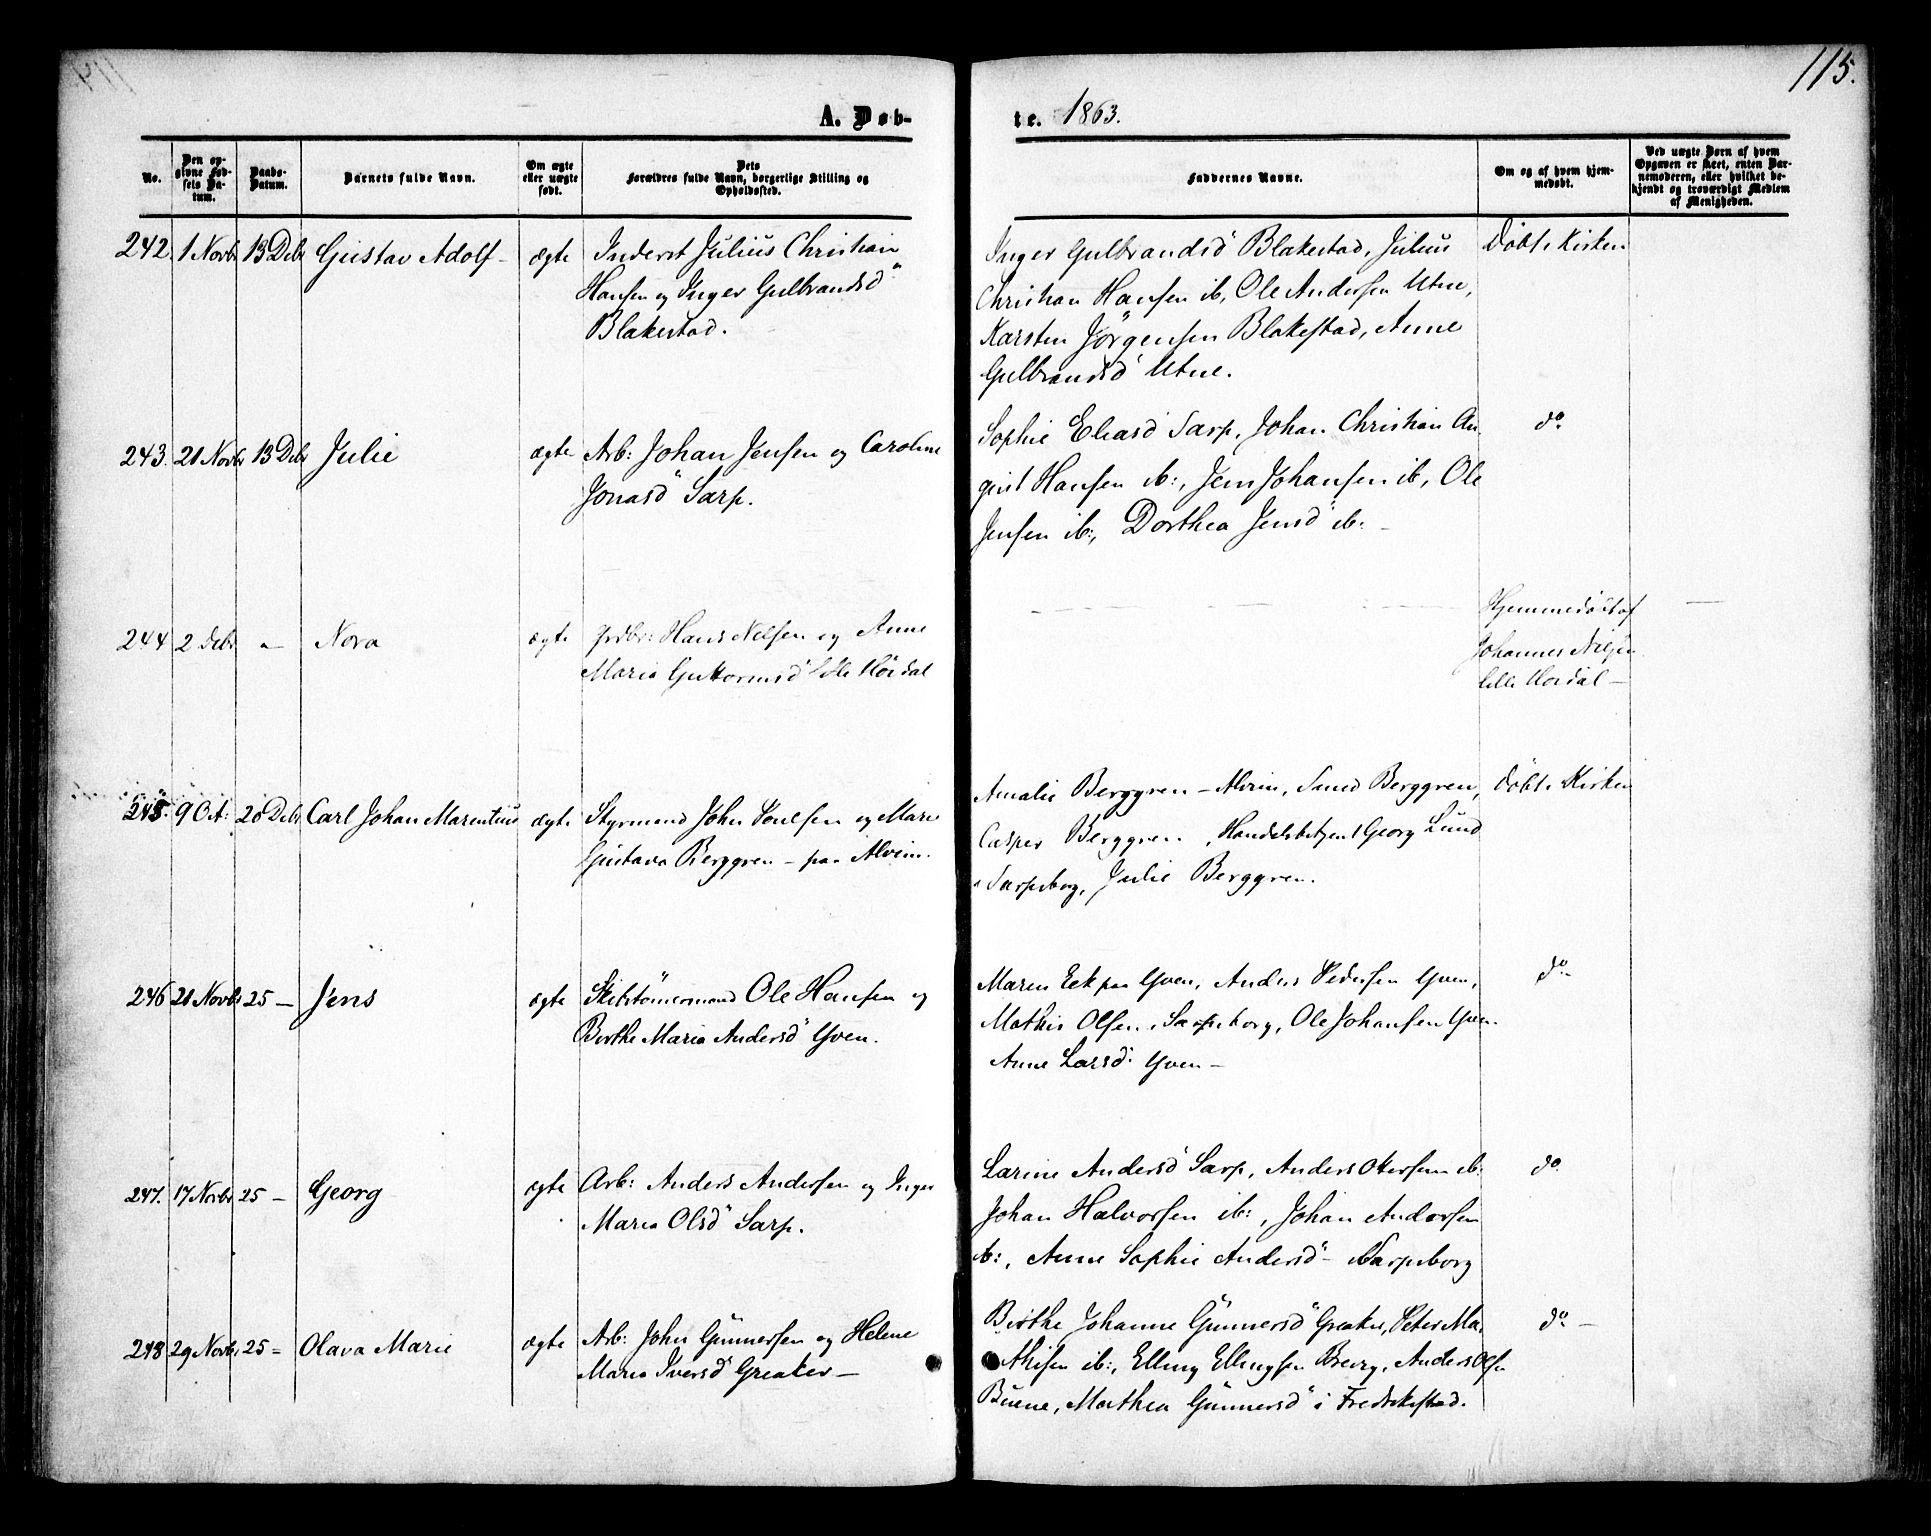 115.
A. Døb-
te. 1863.
No.
Den op-
givne Fød-
sels Da-
tum.
Daabs-
Datum.
Barnets fulde Navn.
Om ægte
eller uægte
født.
Dets
Forældres fulde Navn, borgerlige Stilling og
Opholdssted.
Faddernes Navne.
Om og af hvem hjem-
medøbt.
Ved uægte Børn af hvem
Opgaven er skeet, enten Bar-
nemoderen, eller hvilket be-
kjendt og troværdigt Medlem
af Menigheden.
242. 1 Novbr 13 Debr Gustav Adolf - ægte Inderst Julius Christian
Hansen og Inger Gulbrandsd
Blakestad.
Inger Gulbrandsd Blakestad, Julius
Christian Hansen ib, Ole Andersen Utne,
Karsten Jörgensen Blakestad, Anne
Gulbrandsd Utne.
Döbt i Kirken
243. 21 Novbr 13 Debr Julie ægte Arb: Johan Jensen og Caroline
Jonasd Sarp.
Sophie Eliasd Sarp, Johan Christian Au-
gust Hansen ib:, Jens Johansen ib, Ole
Jensen ib:, Dorthea Jensd ib: -
do
244 2 Debr - Nora ægte Hans Nilsen og Anne
Maria Guttormsd lille Hördal
Hjemmedöbt af
Johannes Nilsen
lille Hordal -
245. 9 Oct: 20 Debr Carl Johan Marentius ægte Styrmand John Poulsen og Marie
Gustava Berggren - paa Alvim.
Amalie Berggren - Alvim, Berggren,
Casper Berggren, Handelsbetjent Georg Lund
i Sarpsborg, Julie Berggren.
Döbt i Kirken
246 21 Novbr 25 - Jens ægte Skibstömermand Ole Hansen og
Berthe Maria Andersd Yven.
Maren Eek paa Yven, Anders Pedersen Yven,
Mathis Olsen i Sarpsborg, Ole Johansen Yven
Anne Larsd: Yven -
do
247. 17 Novbr 25 - Georg ægte Arb: Anders Andersen og Inger
Maria Olsd Sarp.
Larine Andersd Sarp, Anders ib:
Johan Halvorsen ib:, Johan Andersen
ib:, Anne Sophie Andersd - Sarpsborg
do
248 29 Novbr 25 - Olava Marie ægte Arb: John Gunnersen og Helene
Maria Iversd Greaker -
Birthe Johanne Gunnersd Greaker, Peter Ma-
thisen ib:, Elling Ellingsen Brevig, Anders Olsen
Buene, Mathea Gunnersd i Fredrikstad.
do -